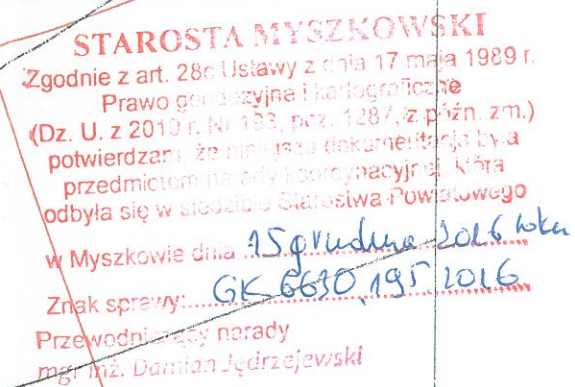 STAROSTA MYSZKOWSKI
Zgodnie z art. 28c Ustawy z dnia 17 maja 1989 r.
Prawo geodezyjne i kartograficzne
(Dz. U. z 2010 r. Nr 193, poz. 1287, z późn. zm.)
potwierdzam, że niniejsza dokumentacja była
przedmiotem narady koordynacyjnej, która
odbyła się w siedzibie Starostwa Powiatowego
w Myszkowie dnia 15 grudnia 2016 roku
Znak sprawy: GK 6630.195.2016
Przewodniczący narady
mgr inż. Damian Jędrzejewski